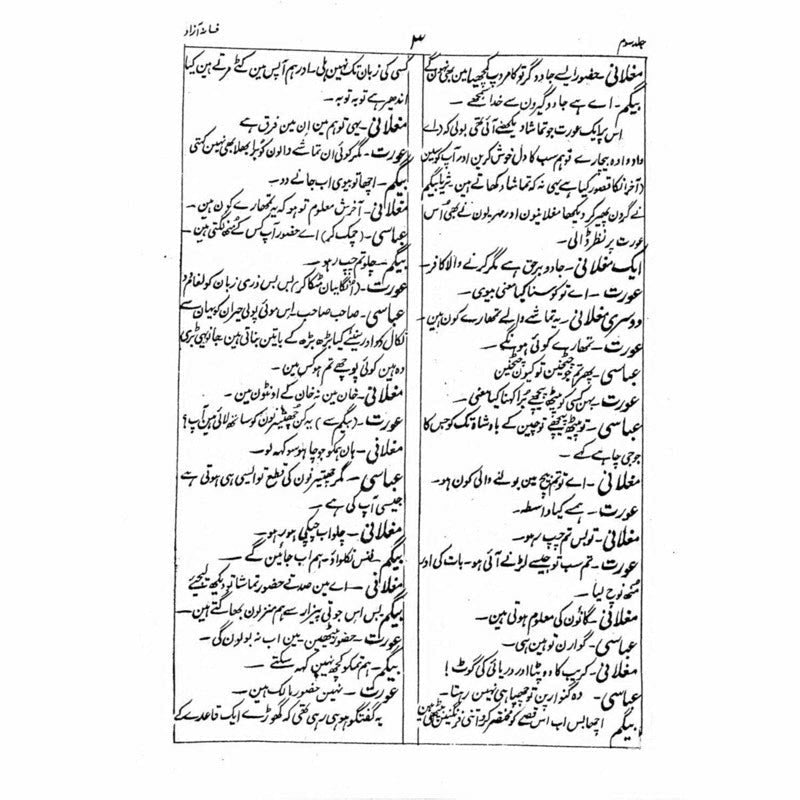 جلد سوم
۳
فسانۂ آزاد
مغلانی۔ حضور ایسے جادوگر تو کامروپ کچھیا مین بھی نہونگے
بیگم۔ اے ہے جادوگرون سے خدا سمجھے۔
اس پر ایک عورت جو تماشا دیکھنے آئی تھی بولی کہ واہ
واہ وہ بیچارے تو ہم سب کا دل خوش کرین اور آپ کوسین
آخر انکا قصور کیا ہے یہی نہ کہ تماشا دکھاتے ہین ثریا بیگم
نے گردن پھیر کر دیکھا مغلانیون اور مہریون نے بھی اُس
عورت پر نظر ڈالی۔
ایک مغلانی۔ جادو برحق ہے مگر کرنے والا کافر۔
عورت۔ اے تو کوسنا کیا معنی بیوی۔
دوسری مغلانی۔ یہ تماشے والے تمھارے کون ہین۔
عورت۔ تمھارے کوئی ہونگے۔
عباسی۔ پھر تم جو چٹخین تو کیون چٹخین
عورت۔ بہن کسی کو پیٹھ پیچھے بُرا کہنا کیا معنی۔
عباسی۔ تو پیٹھ پیچھے تو چین کے بادشاہ تک کو جس کا
جو جی چاہے کہے۔
مغلانی۔ اے تو تم بیچ مین بولنے والی کون ہو۔
عورت۔ ہمسے کیا واسطہ۔
مغلانی۔ تو بس تم چپ رہو۔
عورت۔ تم سب تو جیسے لڑنے آئی ہو۔ بات کی اور
مُنھ نوچ لیا۔
مغلانی۔ گانؤن کی معلوم ہوتی ہین۔
عباسی۔ گوارن تو ہین ہی۔
مغلانی۔ کریب کا دوپٹا اور دریائی کی گوٹ!
عباسی۔ وہ گنوارپن تو چھپا ہی نہین رہتا۔
بیگم اچھا بس اب اس قصے کو مختصر کرو اتنی فرنگنین بیٹھی ہین
کسی کی زبان تک نہین ہلی۔ اور ہم آپس مین کٹے مرتے ہین کیا
اندھیر ہے توبہ توبہ۔
مغلانی۔ یہی تو ہم مین اِن مین فرق ہے
عورت۔ مگر کوئی ان تماشے والون کو بُرا بھلا بھی نہین کہتی
بیگم۔ اچھا تو بیوی اب جانے دو۔
مغلانی۔ آخرش معلوم تو ہو کہ یہ تمھارے کون ہین۔
عباسی۔ (چمک کر) اے حضور آپ کس کے مُنھ لگتی ہین۔
بیگم۔ چلو تم چپ رہو۔
عورت۔ (اُنگلیان مٹکا کر) بس بس ذری زبان کو لغام دو
عباسی۔ صاحب صاحب۔ اِس موئی پولی حیران کو بیان سے
نکال دو اور سنیئے کیا بڑھ بڑھ کے باتین بناتی ہین جانو بھی ٹری
وہ ہین کوئی پوچھے تم ہو کس مین۔
مغلانی۔ خان مین نہ خان کے اونٹون مین۔
عورت۔ (بیگم سے) یہ کن چھتیسزنون کو ساتھ لائی ہین آپ؟
مغلانی۔ ہان ہمکو جو چاہو سو کہہ لو۔
عباسی۔ مگر چھتیسزنون کی قطع تو ایسی ہی ہوتی ہے
جیسی آپ کی ہے۔
مغلانی۔ چلو اب چپکی ہو رہو۔
بیگم۔ فنس نکلواؤ۔ ہم اب جائین گے۔
مغلانی۔ اے مین صدقے حضور تماشا تو دیکھ لیجئے
بیگم بس اس جوتی پیزار سے ہم منزلون بھاگتے ہین۔
عورت۔ حضور بیٹھین۔ مین اب نہ بولون گی۔
بیگم۔ ہم تمکو کچھ نہین کہہ سکتے۔
عورت۔ نہین حضور مالک ہین۔
یہ گفتگو ہو ہی رہی تھی کہ گھوڑے ایک قاعدے کے